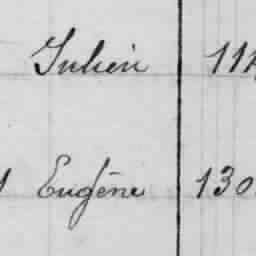 Julien 114
Eugène 130